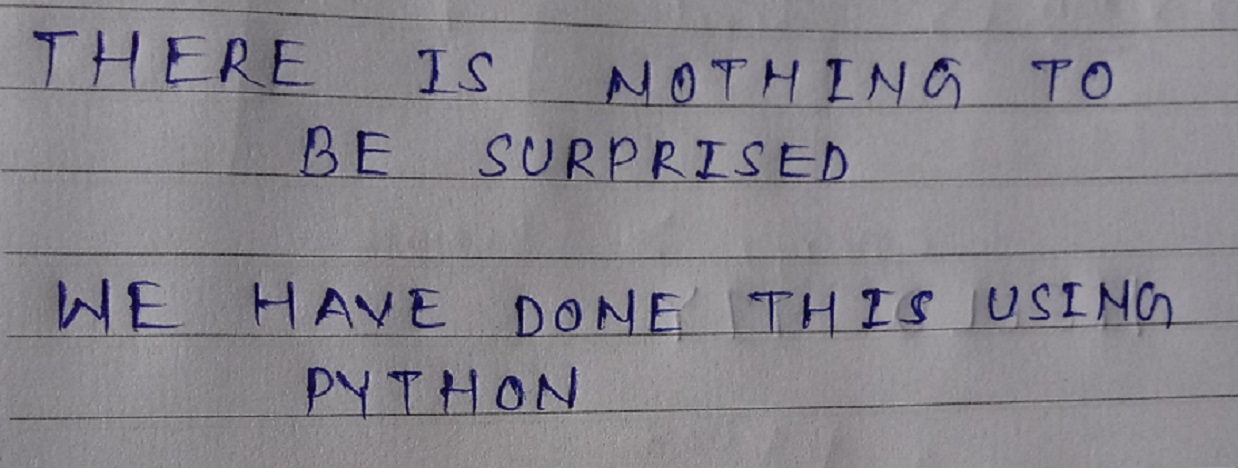 THERE IS NOTHING TO
BE SURPRISED
WE HAVE DONE THIS USING
PYTHON